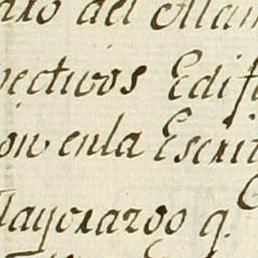 del
pectivos Edif
on en la Escrit
Mayorazgo q.